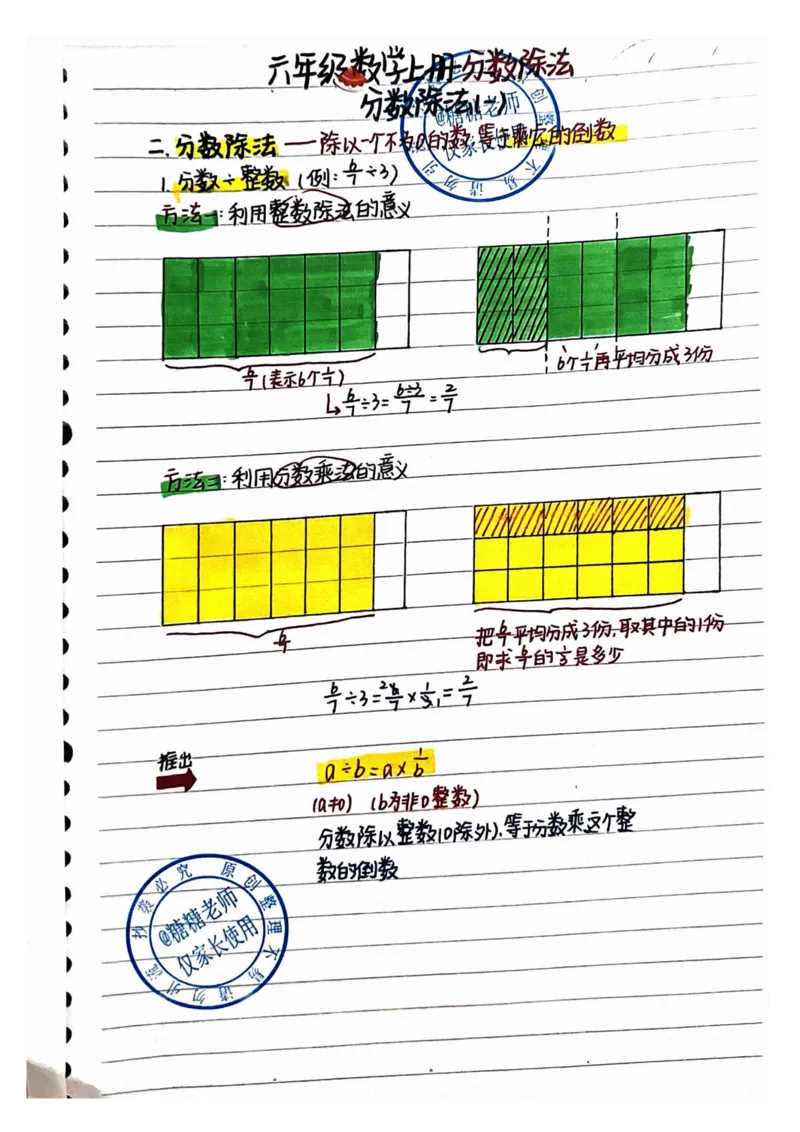 六年级数学上册-分数除法
分数除法(一)
二.分数除法——除以一个不为0的数,等于乘它的倒数
1.分数÷整数(例:6/7÷3)
方法一:利用整数除法的意义
6/7(表示6个1/7)
6个1/7再平均分成3份
↳6/7÷3=6÷3/7=2/7
方法二:利用分数乘法的意义
6/7
把6/7平均分成3份,取其中的1份
即求6/7的1/3是多少
6/7÷3=6/7×1/3=2/7
推出
a÷b=a×1/b
(a≠0) (b为非0整数)
分数除以整数(0除外),等于分数乘这个整
数的倒数
@糖糖老师
仅家长使用
原创整理不易请勿引流抄袭必究